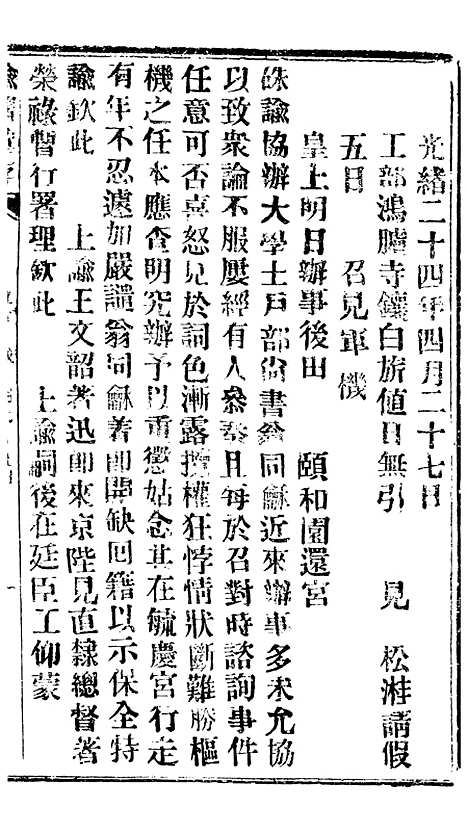 光緒二十四年四月二十七日
工部鴻臚寺鑲白旗值日無引　見　松溎請假
五日　召見軍機
皇上明日辦事後由　頤和園還宮
硃諭協辦大學士戶部尙書翁同龢近來辦事多未允協
以致衆論不服屢經有人參奏且每於召對時諮詢事件
任意可否喜怒見於詞色漸露攬權狂悖情狀斷難勝樞
機之任本應查明究辦予以重懲姑念其在毓慶宮行走
有年不忍遽加嚴譴翁同龢著卽開缺回籍以示保全特
諭欽此　上諭王文韶著迅卽來京陛見直隸總督著
榮祿暫行署理欽此　上諭嗣後在廷臣工仰蒙